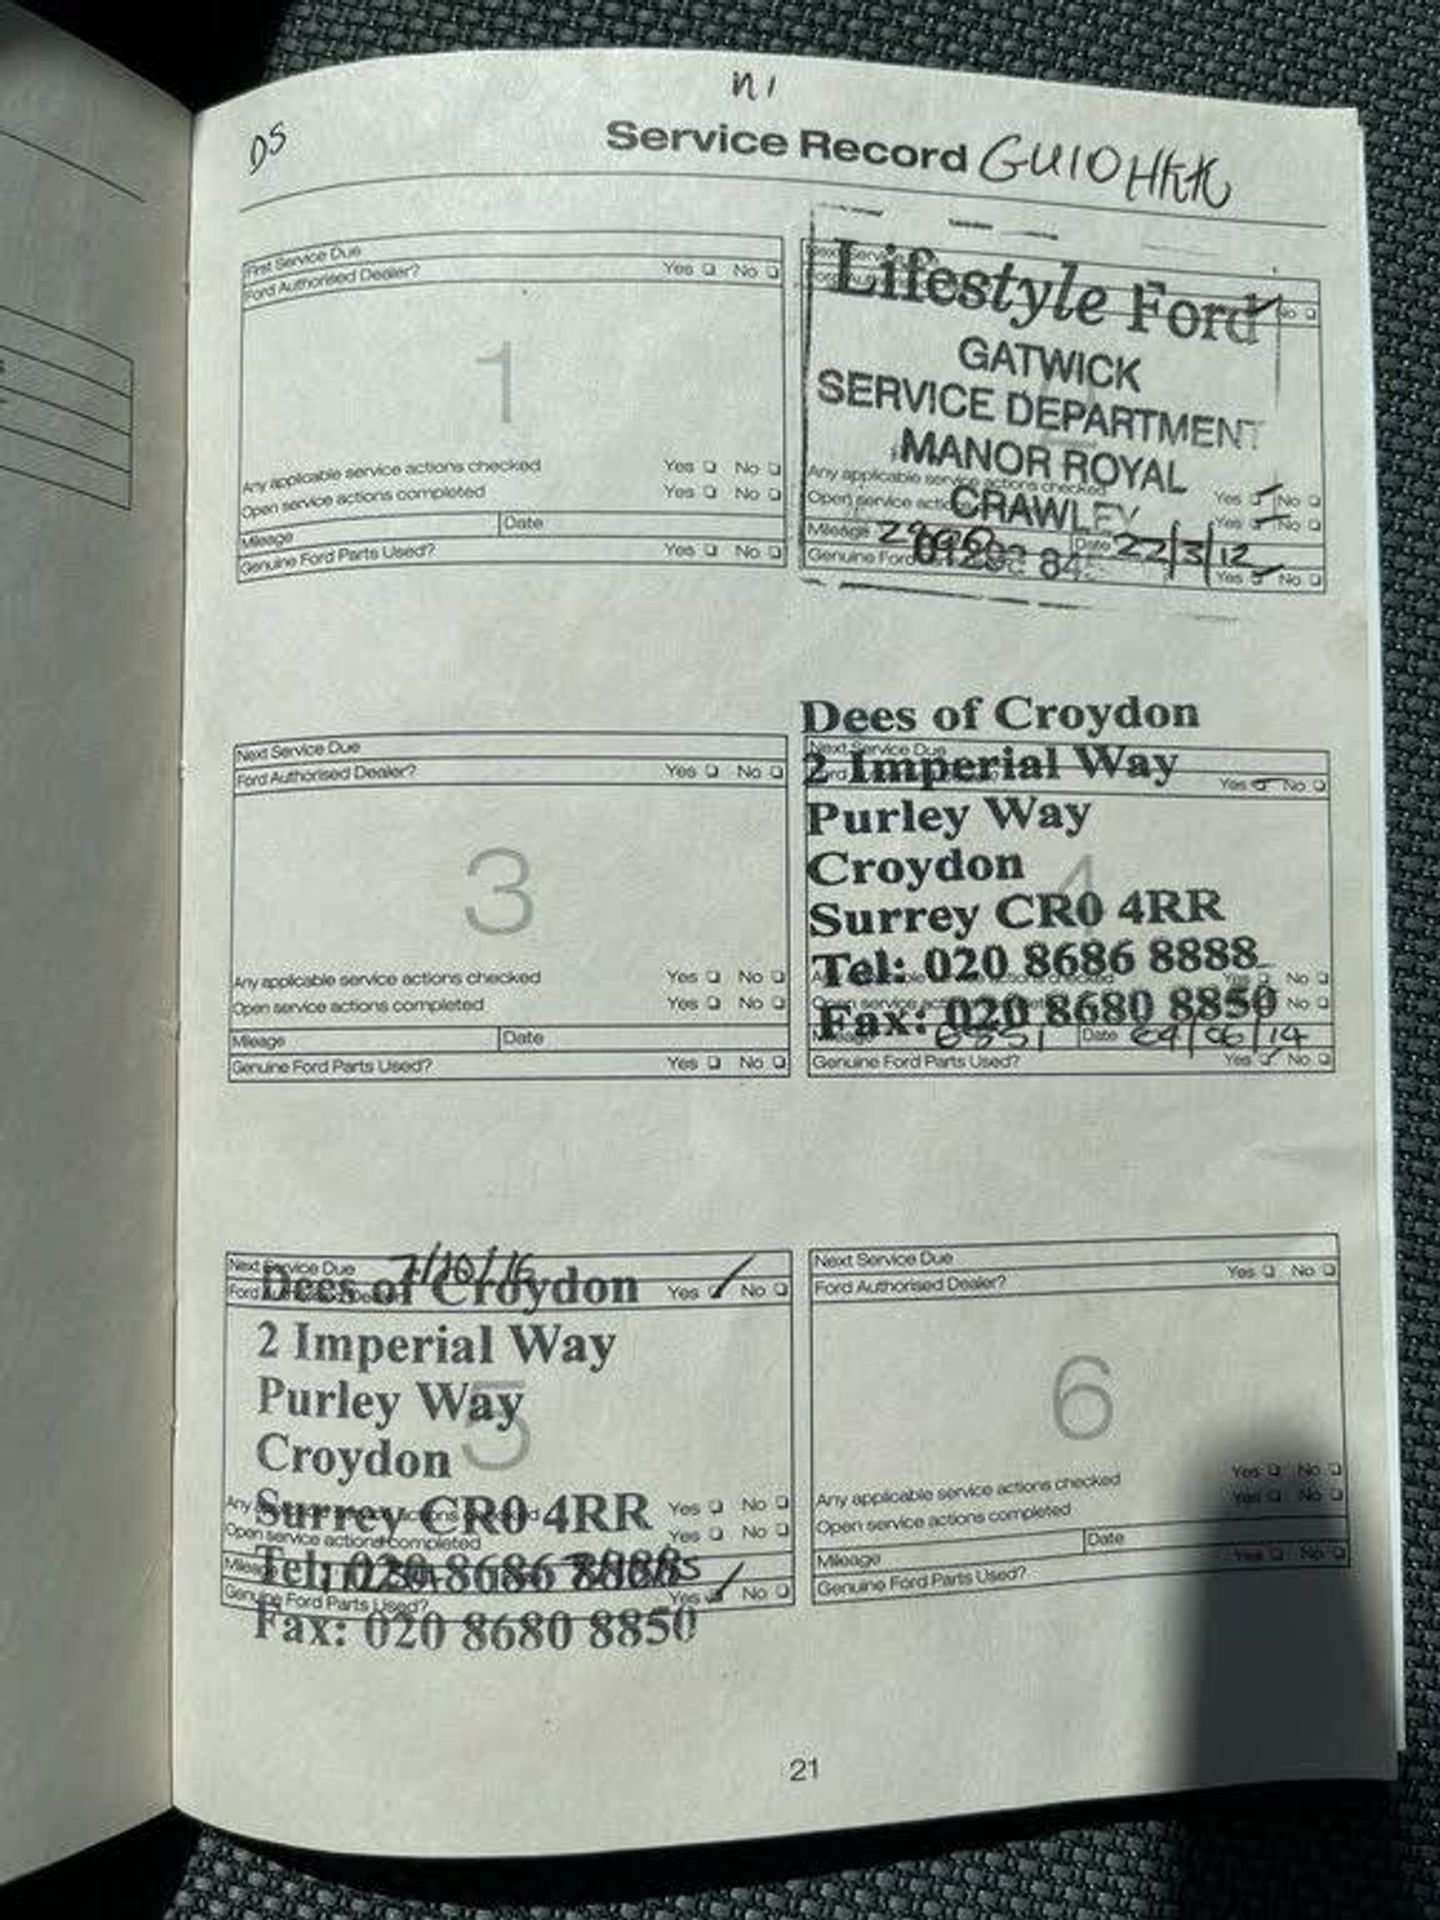 n1
DS
Service Record GU10HKK
First Service Due
Ford Authorised Dealer? Yes No
1
Any applicable service actions checked Yes No
Open service actions completed Yes No
Mileage Date
Genuine Ford Parts Used? Yes No
Next Service
Lifestyle Ford
No
GATWICK
SERVICE DEPARTMENT
MANOR ROYAL
Any applicable service actions checked Yes No
Open service CRAWLEY Yes No
Mileage Date 22/3/12
Genuine Ford 01293 Yes No
Next Service Due
Ford Authorised Dealer? Yes No
3
Any applicable service actions checked Yes No
Open service actions completed Yes No
Mileage Date
Genuine Ford Parts Used? Yes No
Dees of Croydon
Next Service Due
2 Imperial Way
Yes No
Purley Way
Croydon
4
Surrey CR0 4RR
Tel: 020 8686 8888
Yes No
Fax: 020 8680 8850
No
Mileage Date 09/06/14
Genuine Ford Parts Used? Yes No
Next Service Due 7/10/16
Dees of Croydon
Yes No
2 Imperial Way
Purley Way
5
Croydon
Surrey CR0 4RR
Yes No
Open service actions completed Yes No
Tel: 020 8686 8888
Genuine Ford Parts Used? Yes No
Fax: 020 8680 8850
Next Service Due
Ford Authorised Dealer? Yes No
6
Any applicable service actions checked Yes No
Open service actions completed Yes No
Mileage Date
Genuine Ford Parts Used? Yes No
21